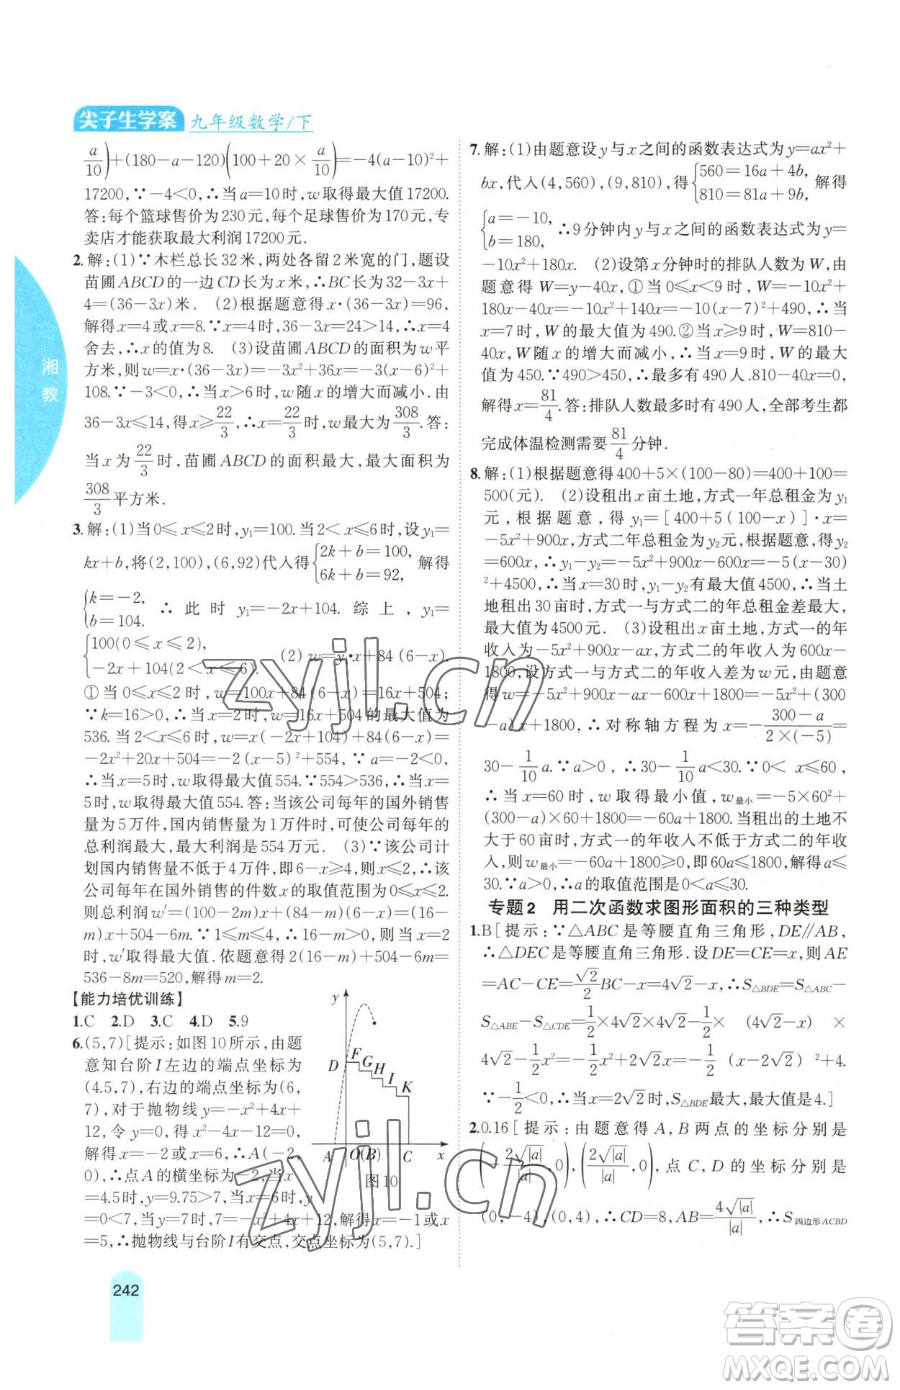 尖子生学案 九年级数学/下
湘教
a/10)+(180-a-120)(100+20×a/10)=-4(a-10)²+
17200.∵-4<0,∴当a=10时,w取得最大值17200.
答:每个篮球售价为230元,每个足球售价为170元,专
卖店才能获取最大利润17200元.
2.解:(1)∵木栏总长32米,两处各留2米宽的门,题设
苗圃ABCD的一边CD长为x米,∴BC长为32-3x+
4=(36-3x)米. (2)根据题意得x·(36-3x)=96,
解得x=4或x=8.∵当x=4时,36-3x=24>14,∴x=4
舍去,∴x的值为8. (3)设苗圃ABCD的面积为w平
方米,则w=x·(36-3x)=-3x²+36x=-3(x-6)²+
108.∵-3<0,∴当x>6时,w随x的增大而减小.由
36-3x≤14,得x≥22/3,∴x=22/3时,w最大为308/3.答:
当x为22/3时,苗圃ABCD的面积最大,最大面积为
308/3平方米.
3.解:(1)当0≤x≤2时,y₁=100.当2<x≤6时,设y₁=
kx+b,将(2,100),(6,92)代入得{2k+b=100, 6k+b=92, 解得
{k=-2, b=104. ∴此时y₁=-2x+104.综上,y₁=
{100(0≤x≤2), -2x+104(2<x≤6). (2)w=y₁x+84(6-x).
①当0≤x≤2时,w=100x+84(6-x)=16x+504;
∵16>0,∴当x=2时,w=16x+504的最大值为
536.当2<x≤6时,w=(-2x+104)x+84(6-x)=
-2x²+20x+504=-2(x-5)²+554.∵-2<0,
∴当x=5时,w取得最大值554.∵554>536,∴当x=
5时,w取得最大值554.答:当该公司每年的国外销售
量为5万件,国内销售量为1万件时,可使公司每年的
总利润最大,最大利润是554万元. (3)∵该公司计
划国内销售量不低于4万件,即6-x≥4,∴x≤2,∴该
公司每年在国外销售的件数x的取值范围为0≤x≤2.
则总利润w'=(100-m)x+(84-m)(6-x)=(16-
m)x+504-6m+mx=16x+504-6m,显然当x=2
时,w'取得最大值.依题意得2(16-m)+504-4m=
536-8m=520,解得m=2.
【能力培优训练】
1.C 2.D 3.C 4.D 5.9
6.(5,7)[提示:如图10所示,由题
意知台阶I左边的端点坐标为
(4.5,7),右边的端点坐标为(6,
7),对于抛物线y=-x²+4x+
12,令y=0,则-x²+4x-12=
0,解得x=-2或x=6,∴A(-2,
0),∴点A的横坐标为-2,当x=
4.5时,y=9.75>7,当x=6时,y
=0<7,当y=7时,7=-x²+4x+12,解得x=-1或x
=5,∴抛物线与台阶I有交点,交点坐标为(5,7).]
y
D F G H I K
A O(B) C x
图10
242
7.解:(1)由题意设y与x之间的函数表达式为y=ax²+
bx,代入(4,560),(9,810),得{560=16a+4b, 810=81a+9b, 解得
{a=-10, b=180, ∴9分钟内y与x之间的函数表达式为y=
-10x²+180x. (2)设第x分钟时的排队人数为W,由
题意得W=y-40x,①当0≤x≤9时,W=-10x²+
180x-40x=-10x²+140x=-10(x-7)²+490,∴当
x=7时,W的最大值为490.②当x≥9时,W=810-
40x,W随x的增大而减小,∴当x=9时,W的最大
值为450.∵490>450,∴最多时有490人.810-40x=0,
解得x=81/4.答:排队人数最多时有490人,全部考生都
完成体温检测需要81/4分钟.
8.解:(1)根据题意得400+5×(100-80)=400+100=
500(元). (2)设租出x亩土地,方式一年总租金为y₁
元,根据题意,得y₁=[400+5(100-x)]·x=
-5x²+900x,方式二年总租金为y₂元,根据题意得y₂
=600x,∴y₁-y₂=-5x²+900x-600x=-5(x-30)²
+4500,∴当x=30时,y₁-y₂有最大值4500,∴当土
地租出30亩时,方式一与方式二的年总租金差最大,
最大值为4500元. (3)由题意得,设方式一的年
收入为-5x²+900x-ax,方式二的年收入为600x-
1800,设方式一与方式二的年收入差为w元,由题意
得w=-5x²+900x-ax-600x+1800=-5x²+(300
-a)x+1800,∴对称轴方程为x=-(300-a)/(2×(-5))=
30-(1/10)a.∵a>0,∴30-(1/10)a<30.∵0<x≤60,
∴当x=60时,w取得最小值,w最小=-5×60²+
(300-a)×60+1800=-60a+1800.当租出的土地不
大于60亩时,方式一的年收入不低于方式二的年收
入,则w最小=-60a+1800≥0,解得a≤
30.∵a>0,∴0<a≤30.
专题2 用二次函数求图形面积的三种类型
1.B[提示:∵△ABC是等腰直角三角形,DE//AB,
∴△DEC是等腰直角三角形.设DE=CE=x,则AE
=AC-CE=(√2/2)BC-x=4√2-x,∴S△BDE=S△ABC-
S△ABE-S△CDE=1/2×4√2×4√2-1/2×(4√2-x)×
4√2-(1/2)x²=-(1/2)x²+2√2x=-(1/2)(x-2√2)²+4.
∵-1/2<0,∴当x=2√2时,S△BDE最大,最大值为4.]
2.0.16[提示:如图,由题意得A,B两点的坐标分别是
(-2√|a|/|a|,0),(2√|a|/|a|,0),点C,D的坐标分别是
(0,-4),(0,4),∴CD=8,AB=4√|a|/|a|,∴S四边形ACBD
zyjl.cn
zyjl.cn
答案圈
MXQE.COM